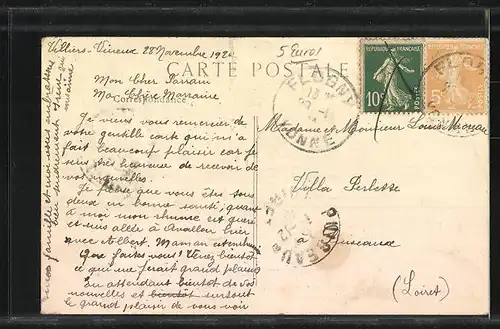 Villiers-Vineux 28 Novembre 192
5 Euro!
CARTE POSTALE
Correspondance
Mon Cher Parrain
Ma Chère Marraine
Je viens vous remercier de
votre gentille carte qui m'a
fait beaucoup plaisir car je
suis très heureuse de recevoir
de vos nouvelles.
Je pense que vous êtes tous
deux en bonne santé, quant
à moi mon rhume est guéri
et suis allée à Avallon hier
avec Albert. Maman
Que faites vous? Venez bientôt
ce qui me ferait grand plaisir
En attendant bientôt de vos
nouvelles et bientôt surtout
le grand plaisir de vous voir
famille et moi vous embrassons
REPUBLIQUE FRANÇAISE
10c
POSTES
REPUBLIQUE FRANÇAISE
5c
POSTES
FLOGNY
YONNE
Madame et Monsieur Louis Moreau
Villa Perlette
(Loiret)